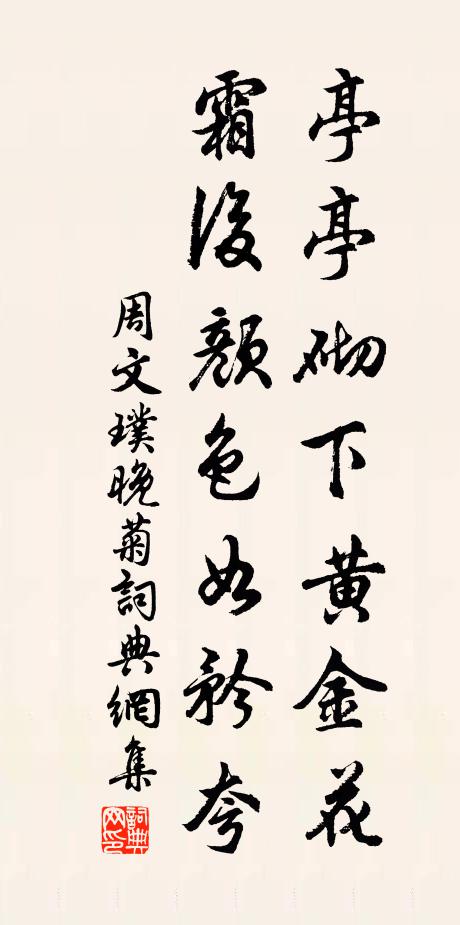 亭亭砌下黄金花
霜後顔色如矜夸
周文璞晚菊詞典網集
詞典網印